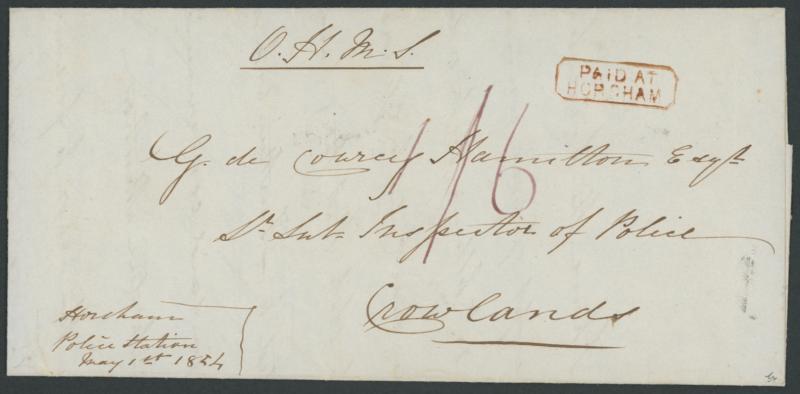 O. H. M. S.
PAID AT
HORSHAM
1/6
G. de Courcy Hamilton Esqr
Sr. Sub Inspector of Police
Crowlands
Horsham
Police Station
May 1st 1854